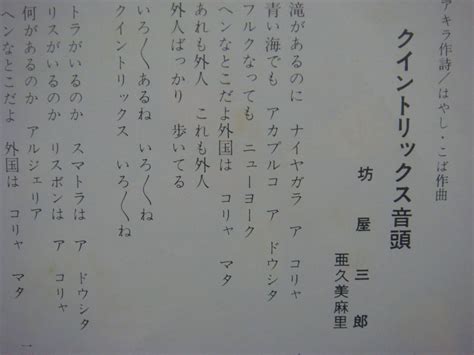 アキラ作詩/はやし・こば作曲
クイントリックス音頭
坊屋三郎
亜久美麻里
滝があるのに ナイヤガラ ア コリャ
青い海でも アカプルコ ア ドウシタ
フルクなっても ニューヨーク
ヘンなとこだよ外国は コリャ マタ
あれも外人 これも外人
外人ばっかり 歩いてる
いろ〱あるね いろ〱ね
クイントリックス いろ〱ね
トラがいるのか スマトラは ア ドウシタ
リスがいるのか リスボンは ア コリャ
何があるのか アルジェリア
ヘンなとこだよ 外国は コリャ マタ